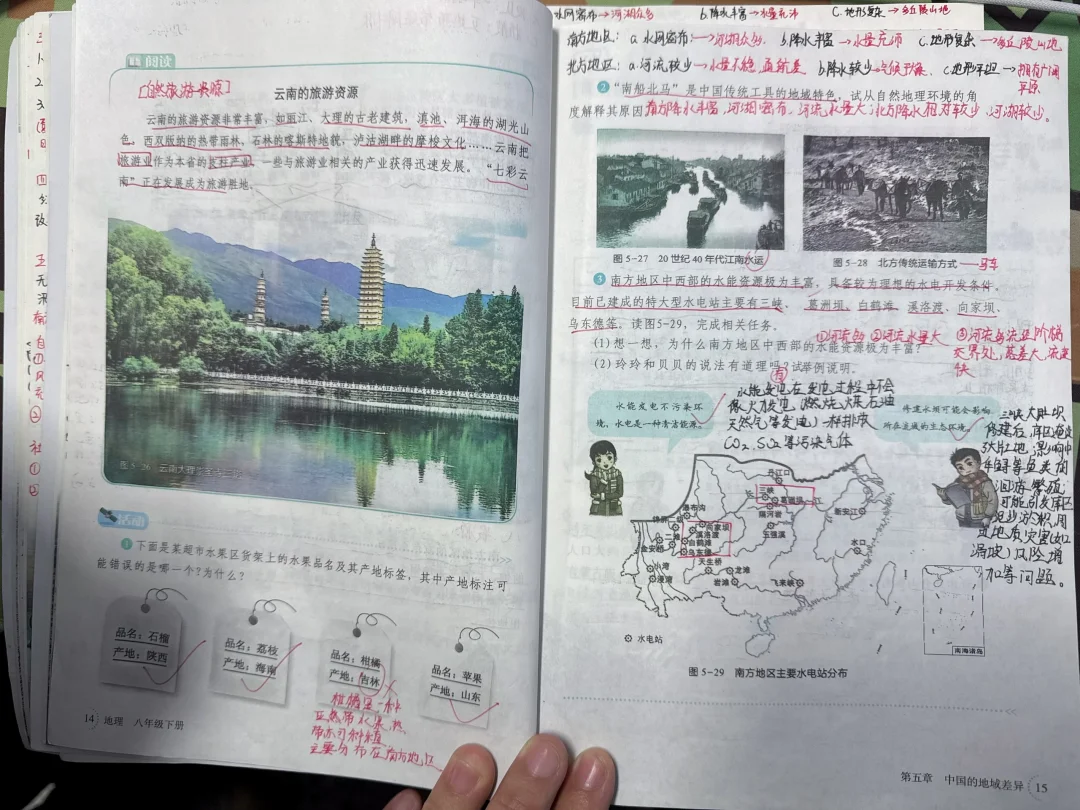 阅读
[自然旅游资源]
云南的旅游资源
云南的旅游资源非常丰富,如丽江、大理的古老建筑,滇池、洱海的湖光山
色,西双版纳的热带雨林,石林的喀斯特地貌,泸沽湖畔的摩梭文化……云南把
旅游业作为本省的支柱产业,一些与旅游业相关的产业获得迅速发展。“七彩云
南”正在发展成为旅游胜地。
图 5-26 云南大理
活动
1 下面是某超市水果区货架上的水果品名及其产地标签,其中产地标注可
能错误的是哪一个?为什么?
品名:石榴
产地:陕西
品名:荔枝
产地:海南
品名:柑橘
产地:吉林
品名:苹果
产地:山东
柑橘是一种
亚热带水果,热
主要分布在南方地区
14 地理 八年级下册
水网密布→河湖众多 b.降水丰富→水量充沛 C.地形复杂→多丘陵山地
南方地区: a.水网密布:→河湖众多. b.降水丰富→水量充沛 C.地形复杂→多丘陵山地
北方地区: a.河流较少→水量不稳,通航差 b.降水较少→气候干燥. C.地形平坦→拥有广阔
平原
2 “南船北马”是中国传统工具的地域特色,试从自然地理环境的角
度解释其原因 南方降水丰富,河湖密布,河流水量大;北方降水相对较少,河湖较少。
图 5-27 20 世纪 40 年代江南水运
图 5-28 北方传统运输方式 —马车
3 南方地区中西部的水能资源极为丰富,具备较为理想的水电开发条件。
目前已建成的特大型水电站主要有三峡、葛洲坝、白鹤滩、溪洛渡、向家坝、
乌东德等。读图5-29,完成相关任务。
①河流多 ②河流水量大 ③河流多流经阶梯
交界处,落差大,流速
快
(1)想一想,为什么南方地区中西部的水能资源极为丰富?
(2)玲玲和贝贝的说法有道理吗?试举例说明。
有
水能发电不污染环
境,水电是一种清洁能源。
水能发电在发电过程中不会
像火力发电(燃烧煤、石油
天然气等发电)一样排放
CO₂,SO₂等污染气体
修建水坝可能会影响
所在流域的生态环境。
三峡大坝
修建后,库区淹没
大片土地,影响中
华鲟等鱼类的
洄游繁殖;
可能引发库区
泥沙淤积,周
边地质灾害(如
滑坡)风险增
加等问题。
丹江口
三峡
葛洲坝
江
隔河岩
五强溪
新安江
水口
瀑布沟
二滩
向家坝
溪洛渡
白鹤滩
乌东德
金安桥
小湾
漫湾
天生桥
龙滩
岩滩
飞来峡
南海诸岛
水电站
图 5-29 南方地区主要水电站分布
第五章 中国的地域差异 15